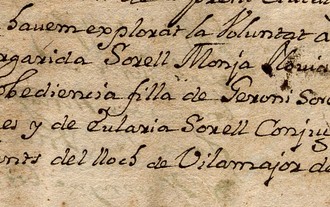 havem explorat la Voluntat a
rgarida Sorell Monja Novici
obediencia filla de Geroni Sor
es y de Eularia Sorell Conjug
unts del lloch de Vilamajor d